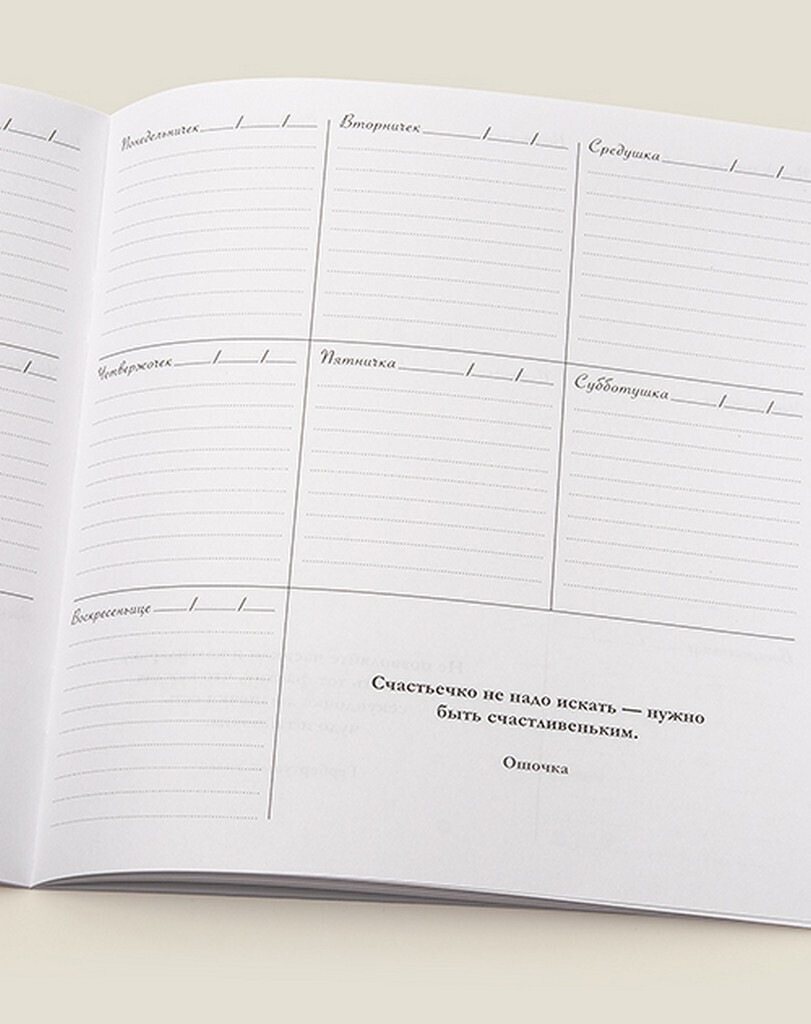 Понедельничек ___/___/___
Вторничек ___/___/___
Средушка ___/___/___
Четвержочек ___/___/___
Пятничка ___/___/___
Субботушка ___/___/___
Воскресеньице ___/___/___
Счастьечко не надо искать — нужно
быть счастливеньким.
Ошочка